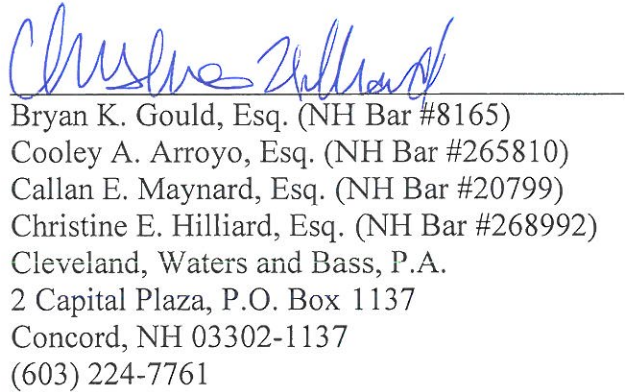 Christine Hilliard
Bryan K. Gould, Esq. (NH Bar #8165)
Cooley A. Arroyo, Esq. (NH Bar #265810)
Callan E. Maynard, Esq. (NH Bar #20799)
Christine E. Hilliard, Esq. (NH Bar #268992)
Cleveland, Waters and Bass, P.A.
2 Capital Plaza, P.O. Box 1137
Concord, NH 03302-1137
(603) 224-7761